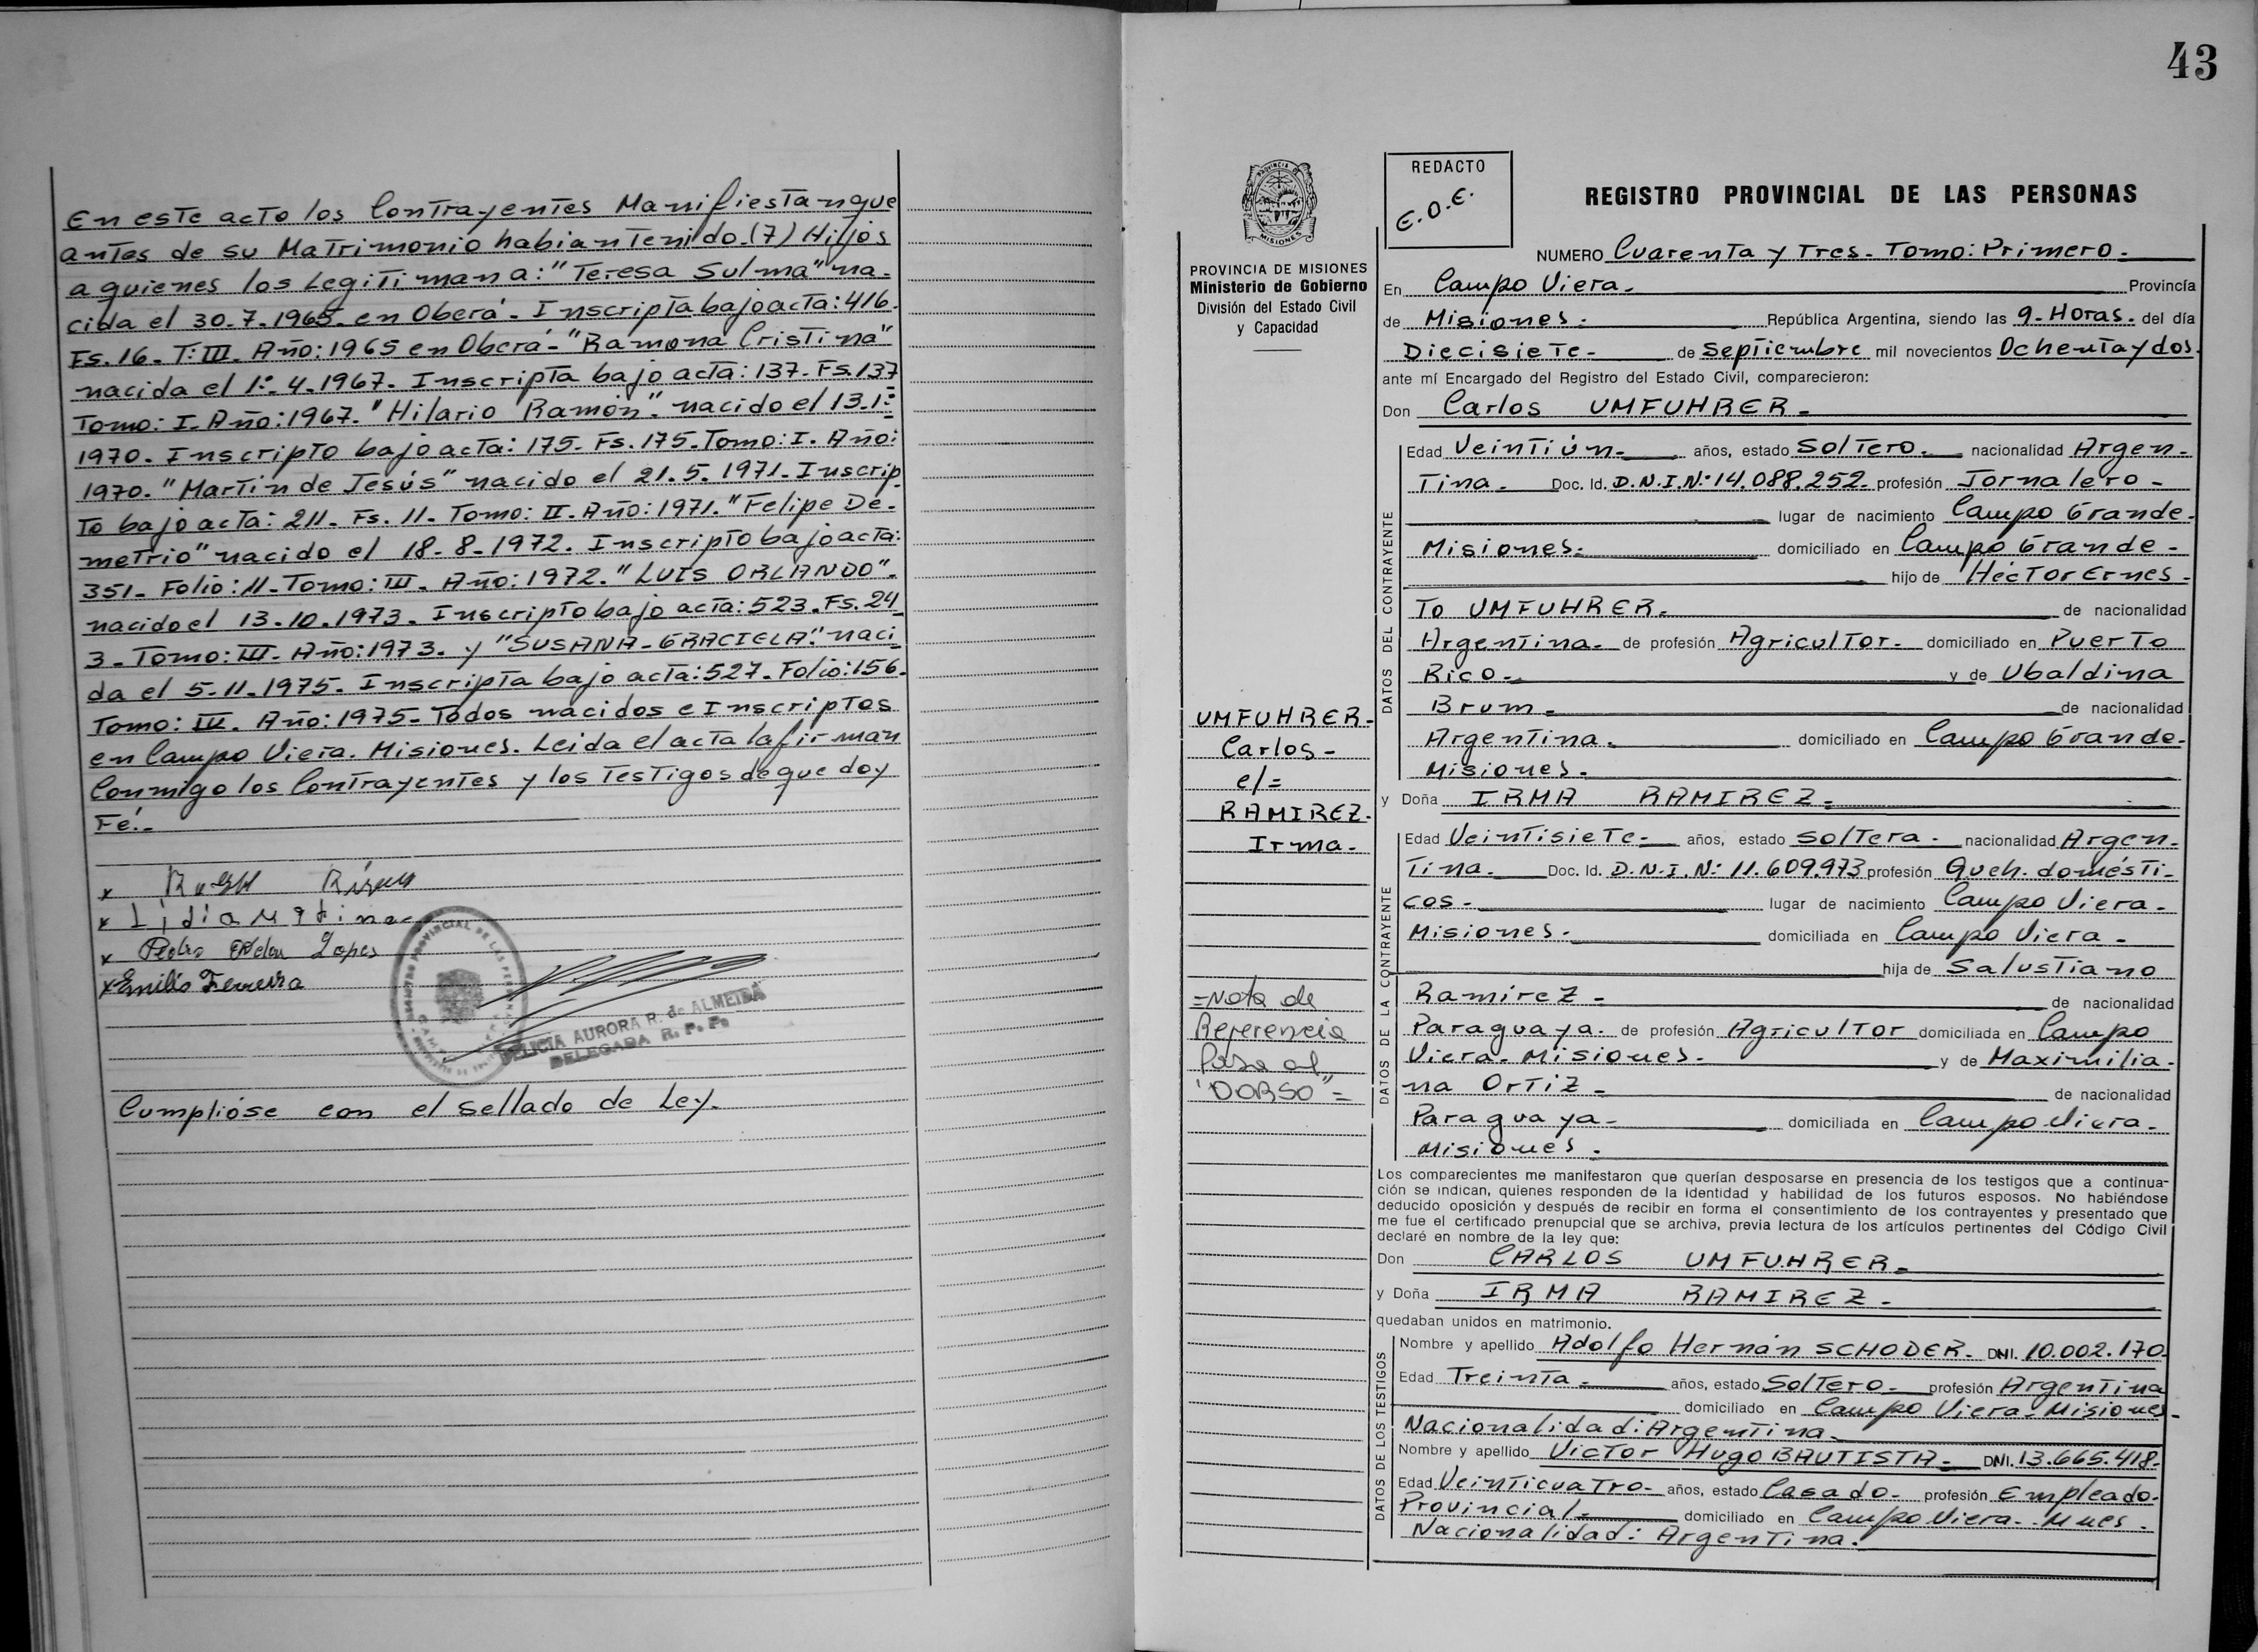 En este acto los Contrayentes Manifiestan que
antes de su Matrimonio habian tenido. (7) Hijos
a quienes los Legitiman a: "Teresa Sulma" na-
cida el 30.7.1965. en Oberá - Inscripta bajo acta: 416.
Fs. 16. T: III. Año: 1965 en Oberá - "Ramona Cristina"
nacida el 1º. 4. 1967. Inscripta bajo acta: 137. Fs. 137
Tomo: I. Año: 1967. "Hilario Ramón". nacido el 13.1º
1970. Inscripto bajo acta: 175. Fs. 175. Tomo: I. Año:
1970. "Martín de Jesús" nacido el 21.5.1971. Inscrip.
to bajo acta: 211. Fs. 11. Tomo: II. Año: 1971. "Felipe De-
metrio" nacido el 18-8-1972. Inscripto bajo acta:
351. Folio: 11. Tomo: III. Año: 1972. "LUIS ORLANDO".
nacido el 13.10.1973. Inscripto bajo acta: 523. Fs. 24
3. Tomo: III. Año: 1973. y "SUSANA-GRACIELA". naci
da el 5-11-1975. Inscripta bajo acta: 527. Folio: 156.
Tomo: III. Año: 1975. Todos nacidos e Inscriptos
en Campo Viera. Misiones. Leida el acta la firman
Conmigo los Contrayentes y los Testigos de que doy
Fé.-
x
x Lidia
x Pedro Lopes
x Emilio Ferreira
DELICIA AURORA R. de ALMEIDA
DELEGADA R. P. P.
Cumplióse con el sellado de Ley.
43
PROVINCIA DE MISIONES
Ministerio de Gobierno
División del Estado Civil
y Capacidad
UMFUHRER-
Carlos-
c/=
RAMIREZ.
Irma-
=Nota de
Referencia
Pasa al
"DORSO"=
REDACTO
E.O.E.
REGISTRO PROVINCIAL DE LAS PERSONAS
NUMERO Cuarenta y Tres. Tomo: Primero.
En Campo Viera. Provincía
de Misiones. República Argentina, siendo las 9-Horas. del día
Diecisiete- de Septiembre mil novecientos Ochenta y dos.
ante mí Encargado del Registro del Estado Civil, comparecieron:
Don Carlos UMFUHRER-
DATOS DEL CONTRAYENTE
Edad Veintiún- años, estado Soltero. nacionalidad Argen-
tina. Doc. Id. D.N.I.Nº 14.088.252. profesión Jornalero-
lugar de nacimiento Campo Grande.
Misiones. domiciliado en Campo Grande-
hijo de Héctor Ernes-
to UMFUHRER. de nacionalidad
Argentina. de profesión Agricultor. domiciliado en Puerto
Rico. y de Ubaldina
Brum. de nacionalidad
Argentina. domiciliado en Campo Grande-
Misiones.
y Doña IRMA RAMIREZ.
DATOS DE LA CONTRAYENTE
Edad Veintisiete- años, estado Soltera. nacionalidad Argen-
tina. Doc. Id. D.N.I. Nº 11.609.973 profesión Queh. domésti-
cos. lugar de nacimiento Campo Viera.
Misiones. domiciliada en Campo Viera-
hija de Salustiano
Ramirez- de nacionalidad
Paraguaya. de profesión Agricultor domiciliada en Campo
Viera. Misiones. y de Maximilia-
na Ortiz- de nacionalidad
Paraguaya- domiciliada en Campo Viera.
Misiones.
Los comparecientes me manifestaron que querían desposarse en presencia de los testigos que a continua-
ción se indican, quienes responden de la identidad y habilidad de los futuros esposos. No habiéndose
deducido oposición y después de recibir en forma el consentimiento de los contrayentes y presentado que
me fue el certificado prenupcial que se archiva, previa lectura de los artículos pertinentes del Código Civil
declaré en nombre de la ley que:
Don CARLOS UMFUHRER-
y Doña IRMA RAMIREZ-
quedaban unidos en matrimonio.
DATOS DE LOS TESTIGOS
Nombre y apellido Adolfo Hernán SCHODER. DNI. 10.002.170.
Edad Treinta- años, estado Soltero- profesión Argentina
domiciliado en Campo Viera. Misiones.
Nacionalidad: Argentina.
Nombre y apellido Victor Hugo BAUTISTA. DNI. 13.665.418.
Edad Veinticuatro- años, estado Casado- profesión Empleado.
Provincial. domiciliado en Campo Viera. Mnes.
Nacionalidad: Argentina.